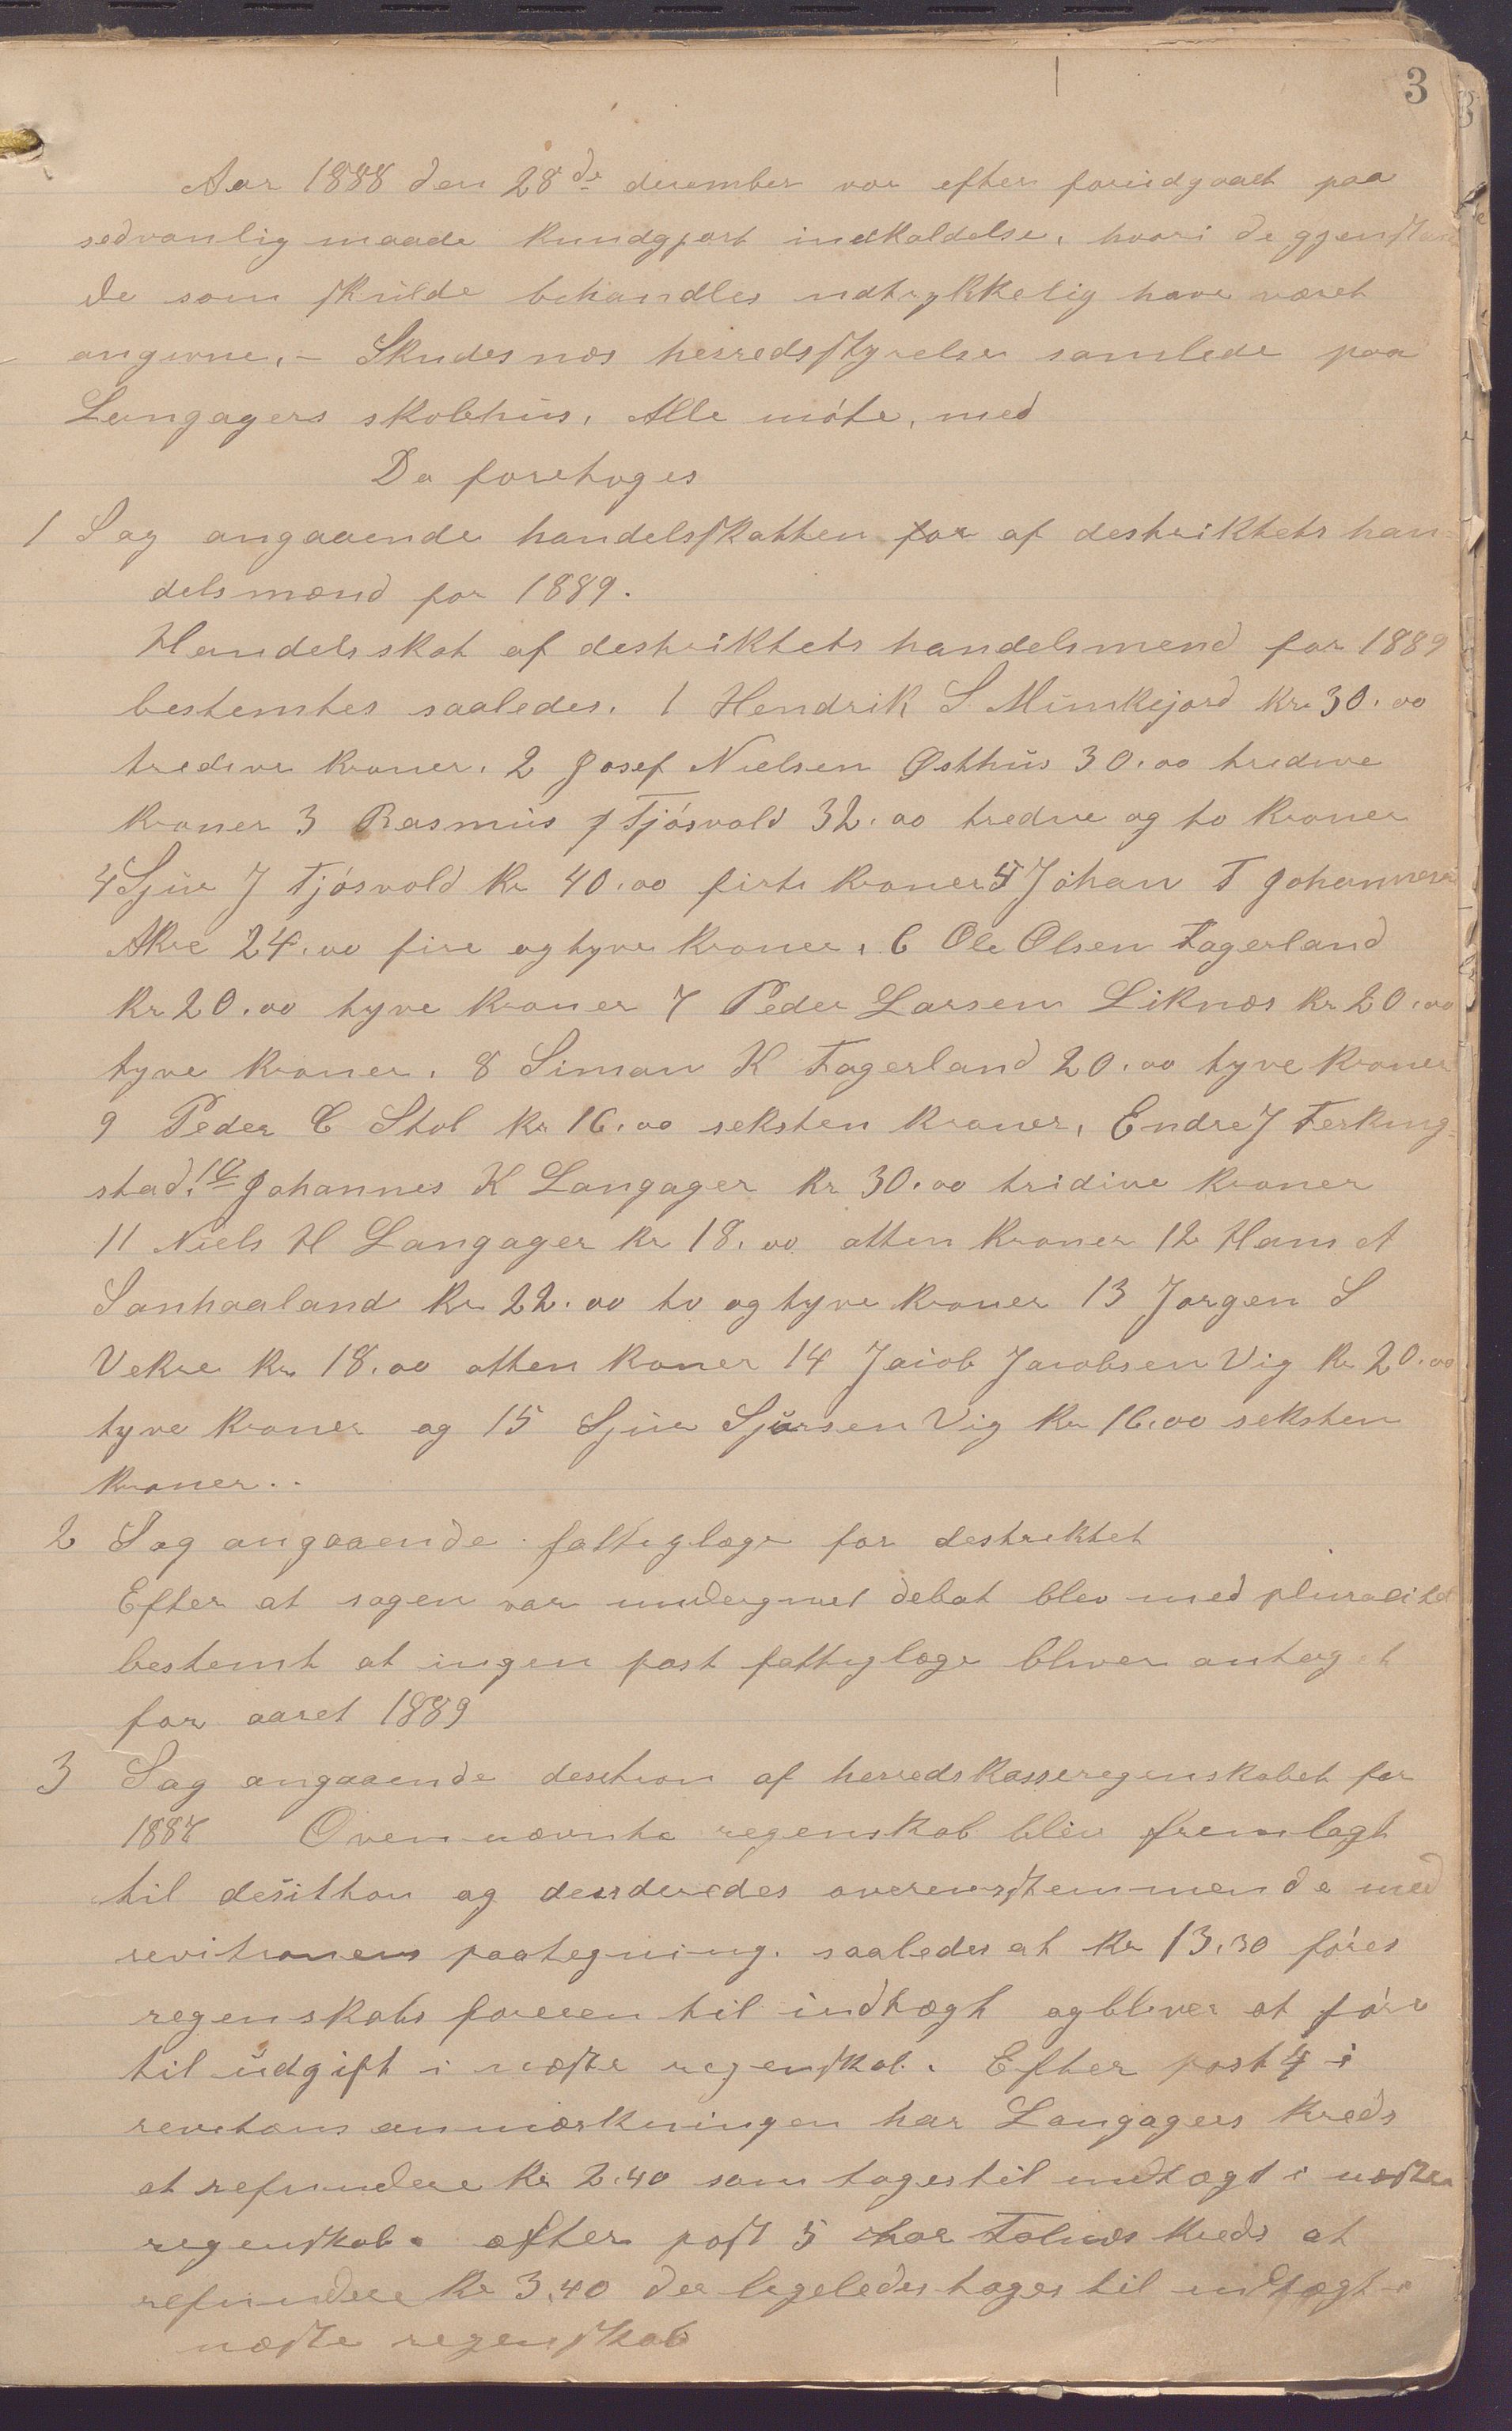 3
Aar 1888 den 28de desember var efter forudgaaet paa
sedvanlig maade kundgjort indkaldelse, hvori de gjenstan
de som skulde behandles udtrykkelig have været
angivne, - Skudesnæs herredsstyrelse samlede paa
Langagers skolehus, Alle møte, med
Da foretoges
1 Sag angaaende handelsskatten for af destriktets han-
delsmænd for 1889.
Handelsskat af destriktets handelsmend for 1889
bestemtes saaledes. 1 Hendrik S Munkejord kr 30.00
tredive kroner. 2 Josef Nielsen Østhus 30.00 tredive
kroner 3 Rasmus J Tjøsvold 32.00 tredive og to kroner
4 Sjur J Tjøsvold kr 40.00 firti kroner 5 Johan T Johannesen
Akre 24.00 fire og tyve kroner, 6 Ole Olsen Fagerland
kr 20.00 tyve kroner 7 Peder Larsen Liknæs kr 20.00
tyve kroner. 8 Simon K Fagerland 20.00 tyve kroner
9 Peder C Stol kr 16.00 seksten kroner, Endre J Ferking-
stad, 10 Johannes K Langager kr 30.00 tridive kroner
11 Niels H Langager kr 18.00 atten kroner 12 Hans A
Sanhaaland kr 22.00 to og tyve kroner 13 Jorgen S
Vekre kr 18.00 atten koner 14 Jacob Jacobsen Vig kr 20.00
tyve kroner og 15 Sjur Sjursen Vig kr 16.00 seksten
kroner..
2 Sag angaaende fattiglæge for destriktet
Efter at sagen var undergivet debat blev med pluralitet
bestemt at ingen fast fattiglæge bliver antaget
for aaret 1889
3 Sag angaaende desetion af herredskasseregenskabet for
1887 Ovennævnte regenskab blev fremlagt
til desition og dessderedes overensstemmende med
revitionens paategning. saaledes at kr 13.30 føres
regenskabs foreren til indtægt og bliver at føre
til udgift i næste regenskab. Efter post 4 i
revitions anmærkningen har Langagers kreds
at refundere kr 2.40 som tages til indtægt i næste
regenskab. efter post 5 har Falnæs kreds at
refundere kr 3.40 der legeledes tages til indtægt i
næste regenskab